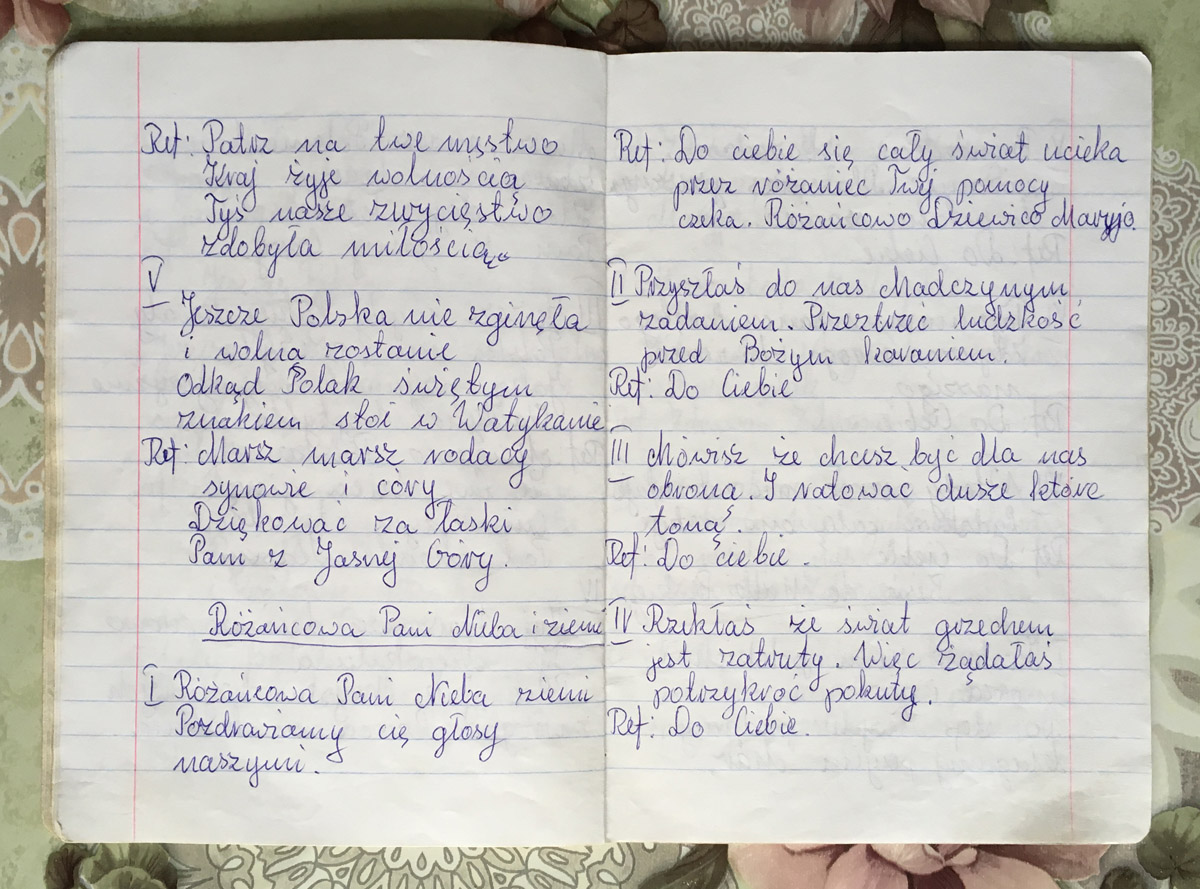 Ref: Patrz na twe męstwo
Kraj żyje wolnością
Tyś nasze zwycięstwo
zdobyła miłością.
V
Jeszcze Polska nie zginęła
i wolną zostanie
Odkąd Polak świętym
znakiem stoi w Watykanie
Ref: Marsz marsz rodacy
synowie i córy
Dziękować za łaski
Pani z Jasnej Góry.
Różańcowa Pani Nieba i ziemi
I Różańcowa Pani Nieba ziemi
Pozdrawiamy cię głosy
naszymi.
Ref: Do ciebie się cały świat ucieka
przez różaniec Twej pomocy
czeka. Różańcowo Dziewico Maryjo.
II Przyszłaś do nas Madczynym
zadaniem. Przestrzec ludzkość
przed Bożym karaniem.
Ref: Do Ciebie
III Mówisz że chcesz być dla nas
obroną. I ratować dusze które
toną.
Ref: Do ciebie.
IV Rzekłaś że świat grzechem
jest zatruty. Więc żądałaś
potrzykroć pokuty.
Ref: Do Ciebie.